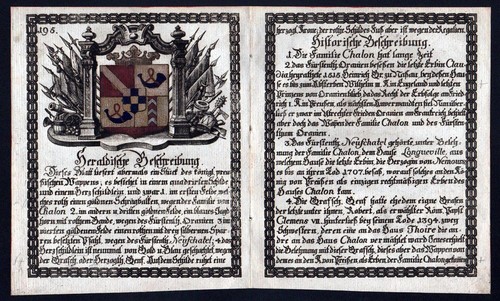 195.
Heraldische Beschreibung.
Dieses Blatt liefert abermals ein Stück des königl. preus-
sischen Wappens, es bestehet in einem quadrierten Schilde
und einem Herzschildlein, und zwar 1. im ersten Felde we-
ches roth einen goldenen Schrägbalken, wegen der Familie von
Chalon 2. im andern u. dritten goldenen Felde, ein blaues Jagd-
horn mit rothem Bande, wegen des Fürstenth. Oranien. 3. im
vierten goldenen Felde einen rothen mit drey silbernen Spar-
ren besetzten Pfahl, wegen des Fürstenth. Neufchatel; 4. das
Herzschildlein ist nemmal von Gold u. Blau geschachtet, wegen
der Grafsch. oder Herzogth. Genf. Auf dem Schilde ruhet eine
herzogl. Krone, der rothe Schildes Fuß aber ist wegen der Regalien.
Historische Beschreibung.
1. Die Familie Chalon hat lange Zeit
2. das Fürstenth. Oranien besessen, die letzte Erbin Clau-
dia heyrathete 1515 Heinrich Gr. zu Nassau, bey dessen Hau-
se es bis zum Absterben Wilhelm III. K. in Engeland und letzten
Prinzens von Oranien blieb, da das Recht der Erbfolge an Fried-
rich I. K. in Preussen, als nächsten Anverwandten fiel. Nun über-
ließ er zwar im Utrechter Frieden Oranien an Frankreich, behielt
aber doch das Wapen der Familie Chalon und des Fürsten-
thum Oranien.
3. Das Fürstenth. Neufchatel gehörte, unter Beleh-
nung der Familie Chalon, dem Hause Longueville, aus
welchem Hause die letzte Erbin die Herzogin von Nemours
es bis an ihren Tod 1707. besaß, worauf solches anden Kö-
nig von Preussen als einzigen rechtmäßigen Erben des
Hauses Chalon kam.
4. Die Grafsch. Genf hatte ehedem eigne Grafen
der letzte unter ihnen, Robert, als erwählter Röm. Papst
Clemens VII. hinterließ bey seinem Tod 1394. zwey
Schwestern, deren eine an das Haus Thoire die an-
dre an das Haus Chalon vermählet ward. Dieses erhielt
die Belehnung mit dieser Grafsch., dieses aber das Wappen von
denen es an den K. von Preussen als Erben der Familie Chalon gekommen